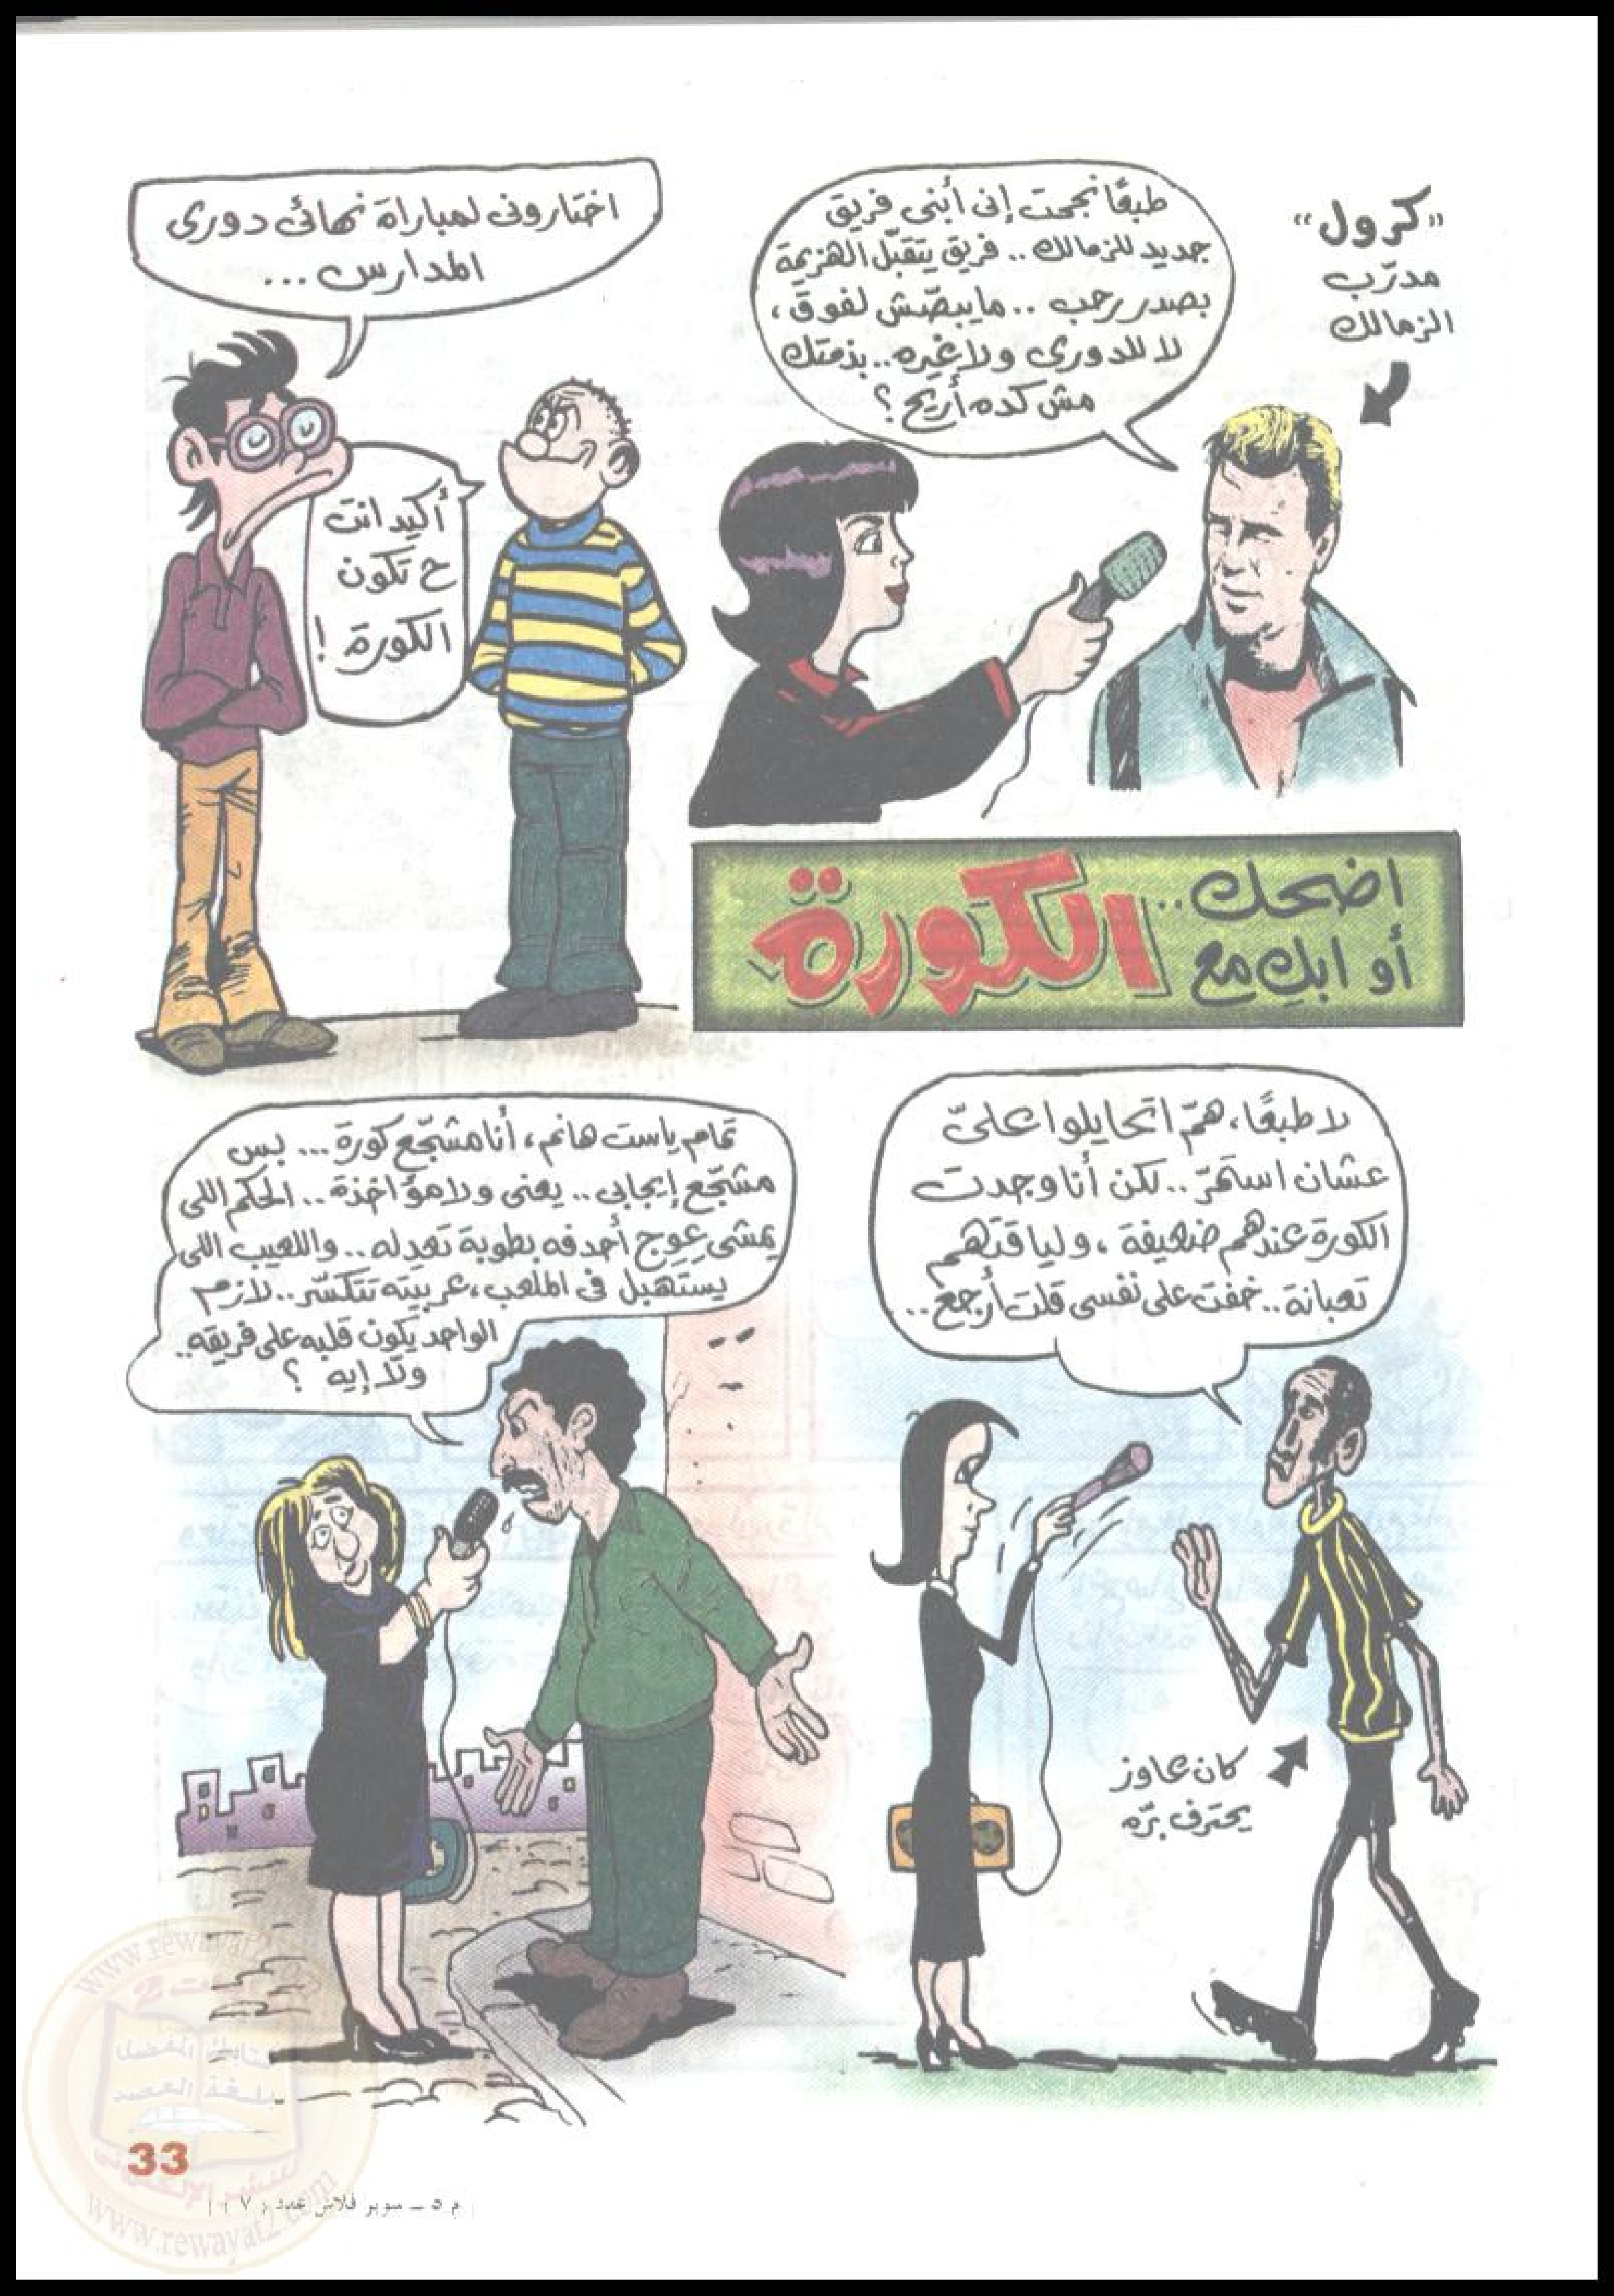 “كرول”
مدرّب
الزمالك
طبعًا نجحت إنى أبنى فريق
جديد للزمالك .. فريق يتقبّل الهزيمة
بصدر رحب .. مايبصّش لفوق،
لا للدورى ولا غيره .. بذمتك
مش كده أريح ؟
اختارونى لمباراة نهائى دورى
المدارس ...
أكيد انت
ح تكون
الكورة !
اضحك ..
أو ابكِ مع الكورة
لا طبعًا، همّ اتحايلوا علىّ
عشان استمرّ .. لكن أنا وجدت
الكورة عندهم ضعيفة، ولياقتهم
تعبانة .. خفت على نفسى قلت أرجع ..
كان عاوز
يحترف برّه
تمام ياست هانم، أنا مشجّع كورة ... بس
مشجّع إيجابى .. يعنى ولا مؤاخذة .. الحكم اللى
يمشى عِوِج أحدفه بطوبة تعدله .. واللعيب اللى
يستهبل فى الملعب، عربيته تتكسّر .. لازم
الواحد يكون قلبه على فريقه ..
ولّا إيه ؟
33
م ٥ ــ سوبر فلاش عدد ( ٧ )
www.rewayat2.com